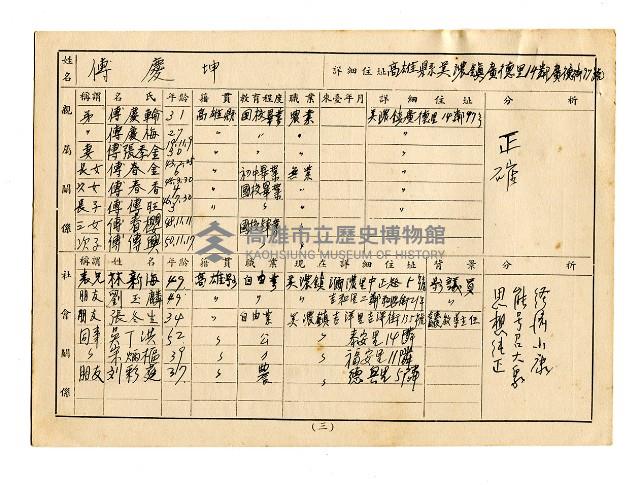 姓名 傅慶坤 詳細住址 高雄縣美濃鎮廣德里14鄰廣德街97號
親屬關係
稱謂 名氏 年齡 籍貫 教育程度 職業 來臺年月 詳細住址 分析
弟 傅慶輪 31 高雄縣 國校畢業 農業 美濃鎮廣德里14鄰97号
〃 傅慶梅 27 〃 〃 〃 〃
妻 傅張季金 30 〃 〃 〃
長女 傅春金 〃 初中畢業 無業 〃
次女 傅春香 〃 國校畢業 〃
長子 傅傳旺 〃 〃 〃
三女 傅春櫻 48.11.11 〃 國校畢業
次子 傅傳興 50.11.17
正確
社會關係
稱謂 姓名 年齡 籍貫 職業 現在詳細住址 背景 分析
表兄 林新海 49 高雄縣 自由業 美濃鎮瀰濃里中正路5號 縣議員
朋友 劉玉麟 49 〃 〃
朋友 張冬生 34 〃 自由業 美濃鎮吉洋里吉洋街135號
同事 吳丁洪 52 〃 公 〃 泰安里14鄰
〃 39 〃 〃 〃 福安里11鄰
朋友 刘彩 37 〃 農 德興里5鄰
經濟小康
能号召大眾
思想純正
(三)
高雄市立歷史博物館
KAOHSIUNG MUSEUM OF HISTORY